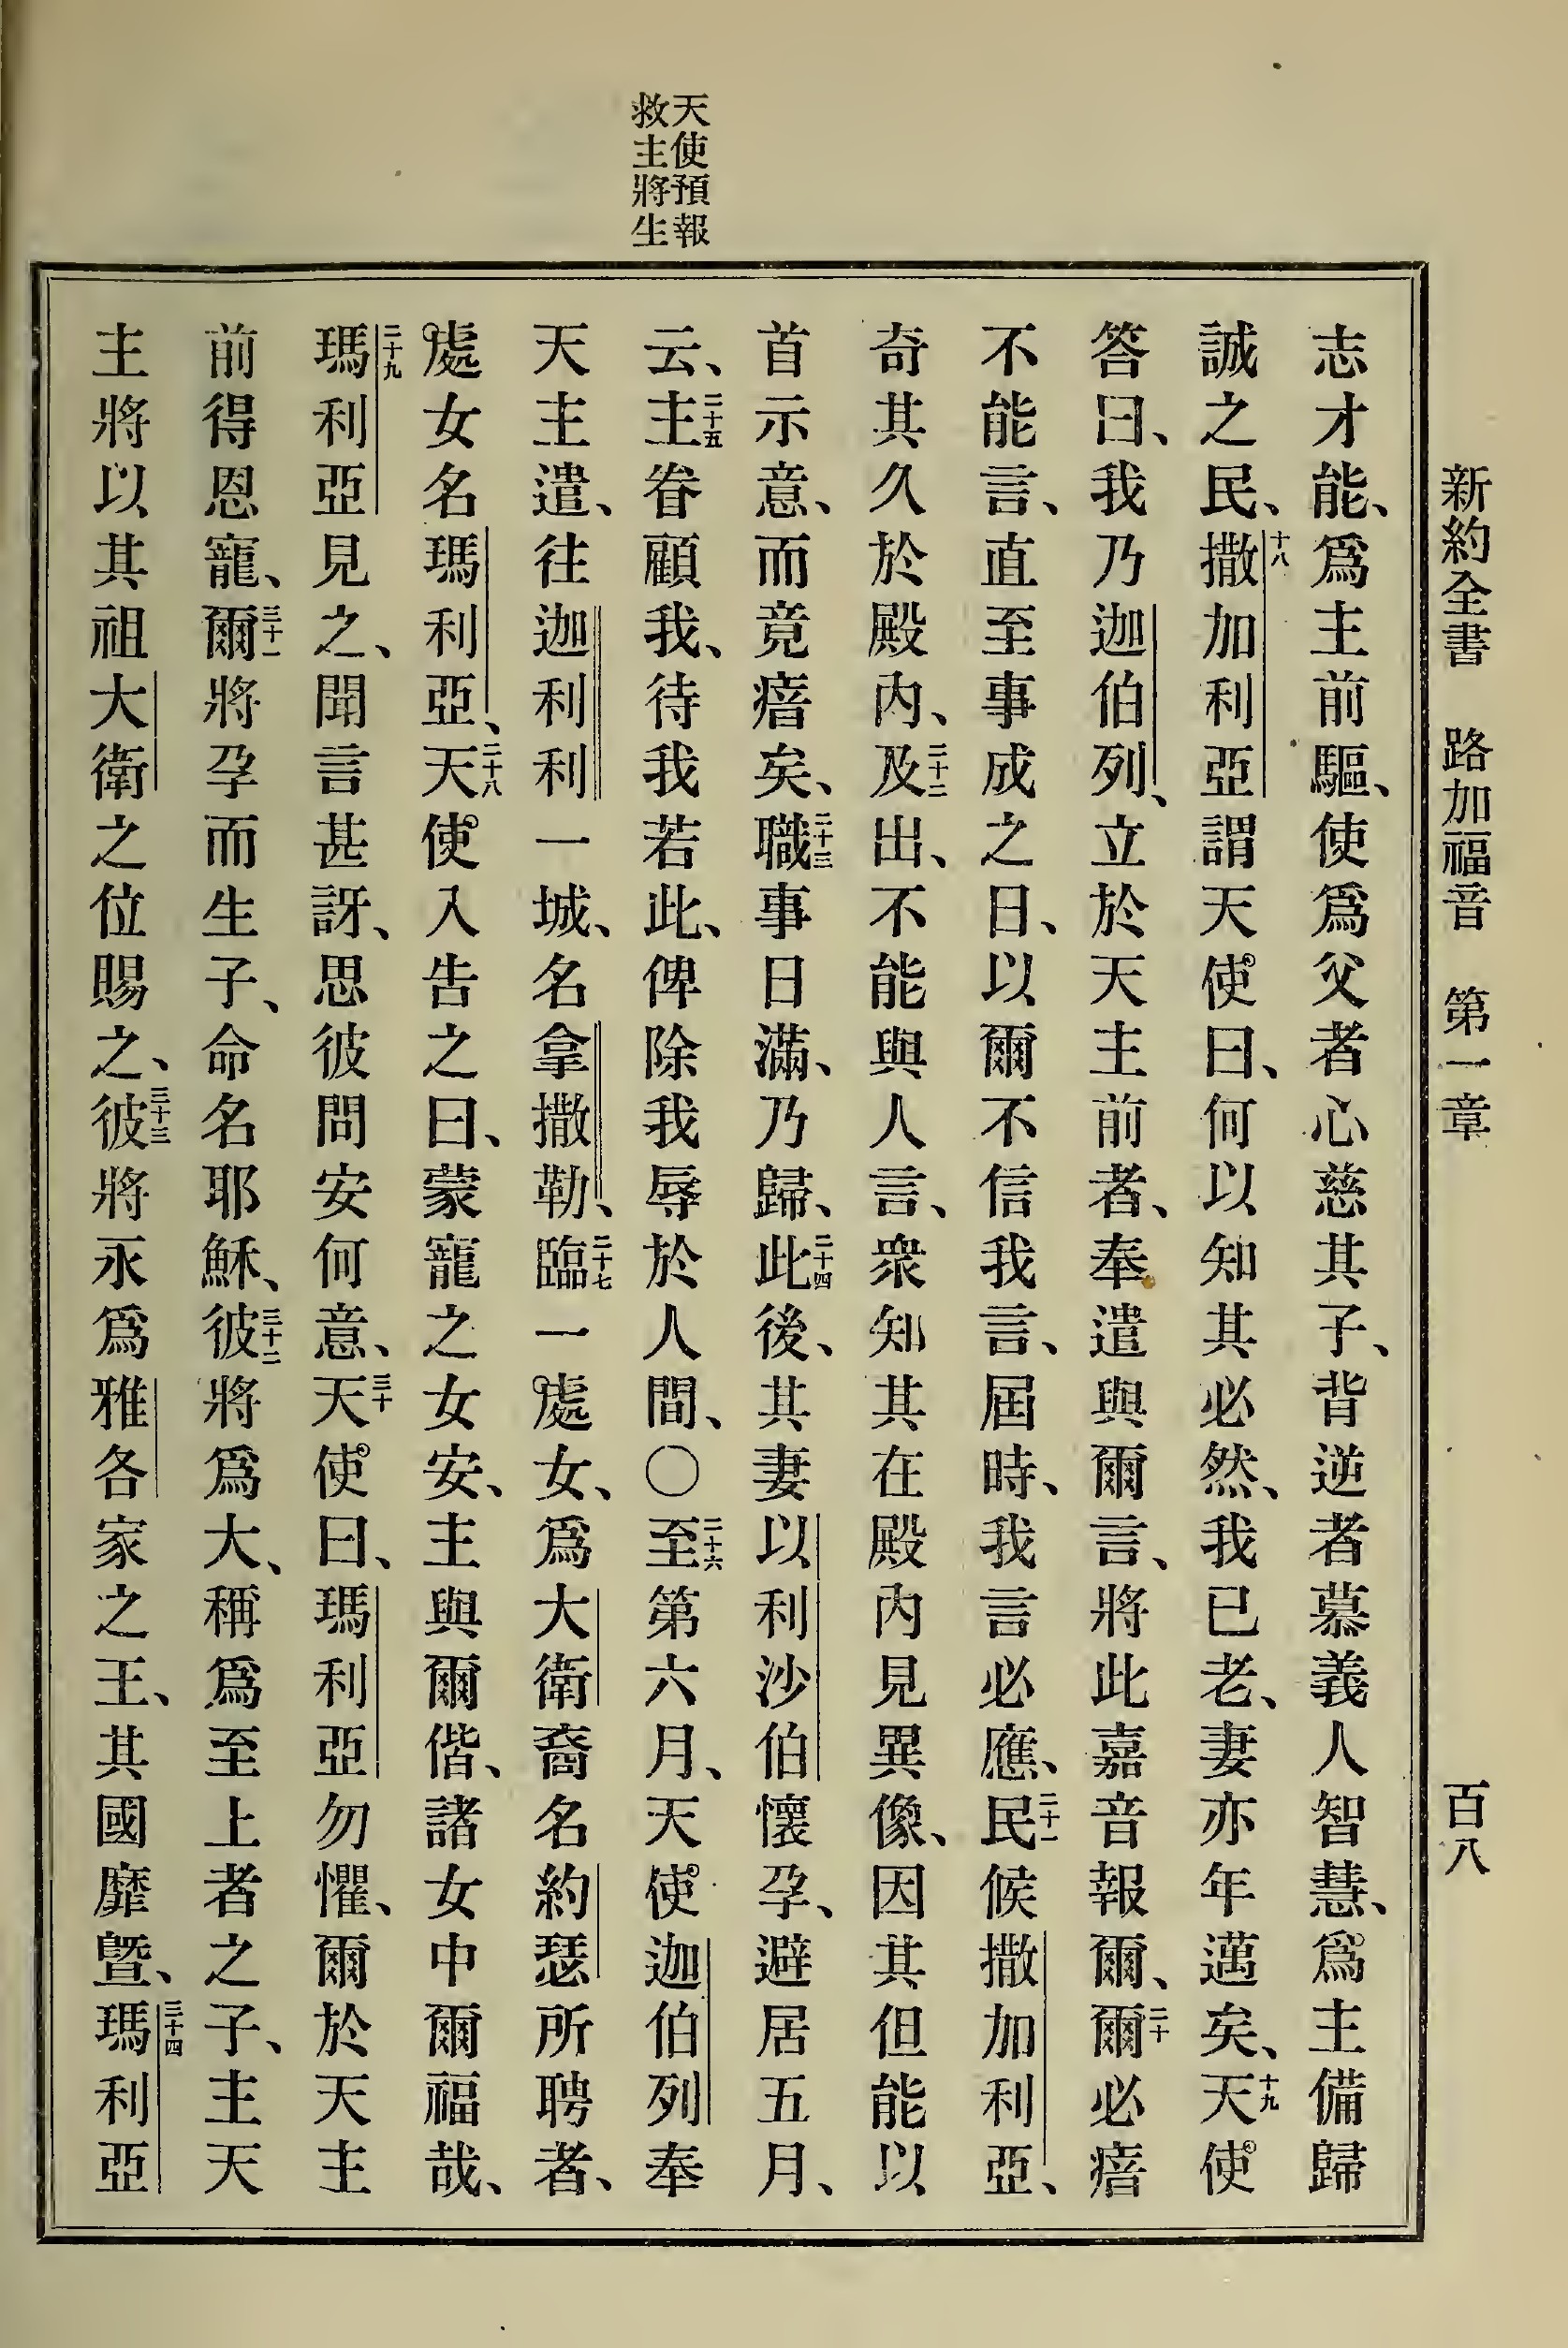 新約全書 路加福音 第一章 百八
天使預報
救主將生
志才能、爲主前驅、使爲父者心慈其子、背逆者慕義人智慧、爲主備歸
誠之民、十八撒加利亞謂天使曰、何以知其必然、我已老、妻亦年邁矣、十九天使
答曰、我乃迦伯列、立於天主前者、奉遣與爾言、將此嘉音報爾、二十爾必瘖
不能言、直至事成之日、以爾不信我言、屆時、我言必應、二十一民候撒加利亞、
奇其久於殿內、二十二及出、不能與人言、衆知其在殿內見異像、因其但能以
首示意、而竟瘖矣、二十三職事日滿、乃歸、二十四此後、其妻以利沙伯懷孕、避居五月、
云、二十五主眷顧我、待我若此、俾除我辱於人間、〇二十六至第六月、天使迦伯列奉
天主遣、往迦利利一城、名拿撒勒、二十七臨一處女、爲大衛裔名約瑟所聘者、
處女名瑪利亞、二十八天使入告之曰、蒙寵之女安、主與爾偕、諸女中爾福哉、
二十九瑪利亞見之、聞言甚訝、思彼問安何意、三十天使曰、瑪利亞勿懼、爾於天主
前得恩寵、三十一爾將孕而生子、命名耶穌、三十二彼將爲大、稱爲至上者之子、主天
主將以其祖大衛之位賜之、三十三彼將永爲雅各家之王、其國靡曁、三十四瑪利亞